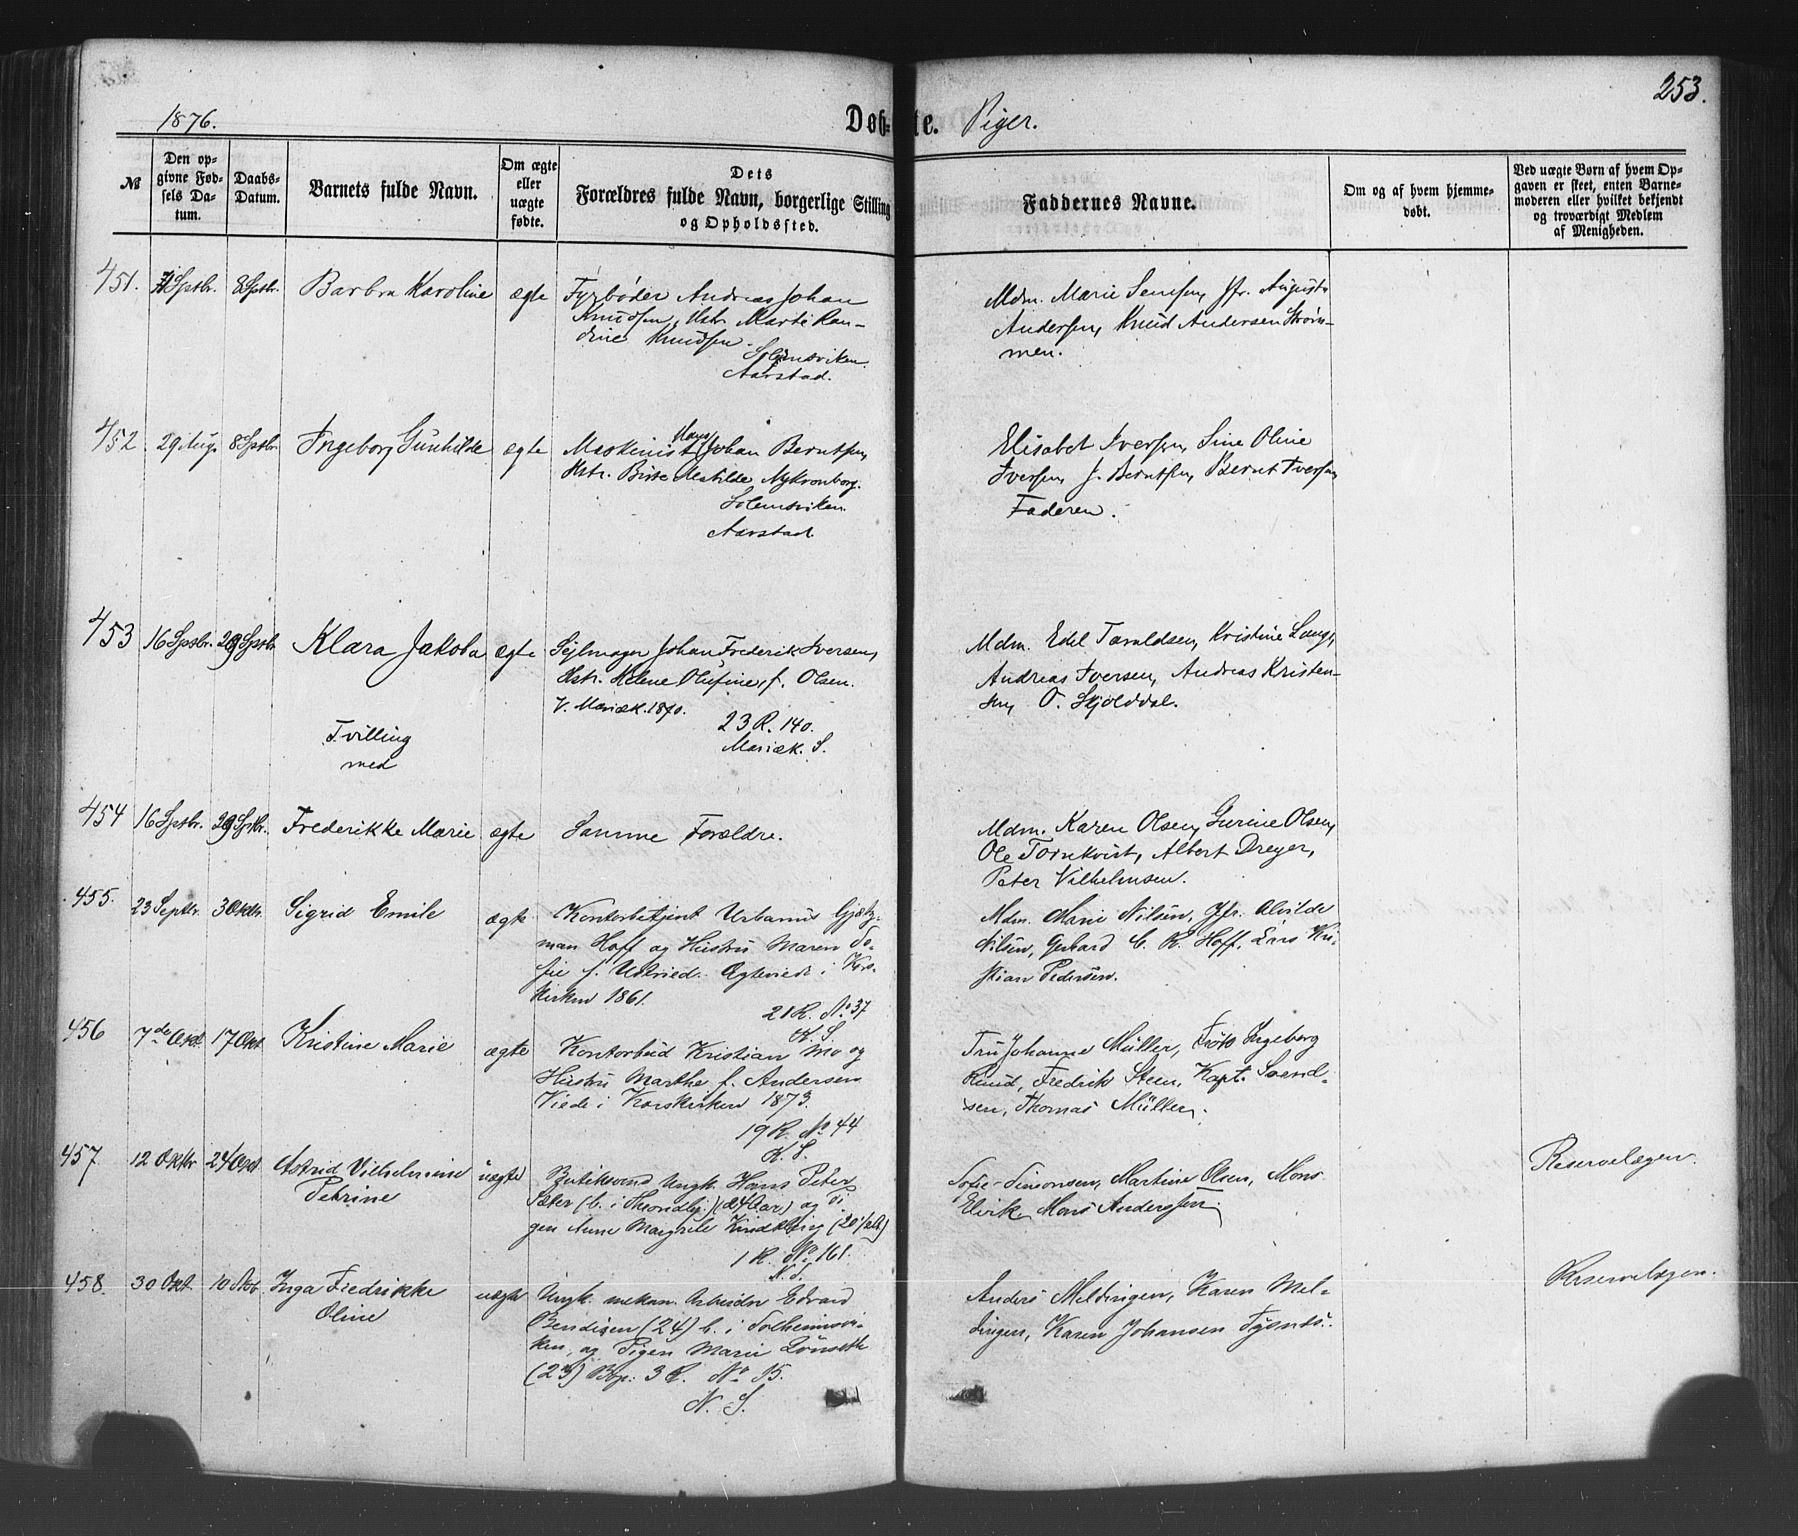 253.
1876.
Døb=te. Piger.
№
Den op-
givne Fød-
sels Da-
tum.
Daabs-
Datum.
Barnets fulde Navn.
Om ægte
eller
uægte
fødte.
Dets
Forældres fulde Navn, borgerlige Stilling
og Opholdssted.
Faddernes Navne.
Om og af hvem hjemme-
døbt.
Ved uægte Børn af hvem Op-
gaven er skeet, enten Barne-
moderen eller hvilket bekjendt
og troværdigt Medlem
af Menigheden.
451. Septbr. 8 Septbr. Barbra Karoline ægte Fyrbøder Andreas Johan
Knudsen, Hstr. Marte Ran-
dine Knudsen.
Solemsviken
Aarstad.
Mdm. Marie Jensen, Jfr. Augusta
Andersen, Knud Andersen Strøm-
men.
452. 29 Aug. 8 Septbr. Ingeborg Gunhilde ægte Maskinist Hans Johan Berntsen,
Hstr. Birte Matilde Nykronborg.
Solemsviken
Aarstad.
Elisabet Iversen, Sine Oline
Iversen, J. Berntsen, Bernt Iversen,
Faderen.
453 16 Septbr. 29 Septbr. Klara Jakoba ægte Sejlmager Johan Frederik Iversen,
Hstr. Helene Olufine, f. Olsen.
V. Mariæk. 1870.
23 R. 140.
Mariæk. S.
Tvilling
med
Mdm. Edel Taraldsen, Kristine Lang,
Andreas Iversen, Andreas Kristen-
sen, O. Skjolddal.
454 16 Septbr. 29 Septbr. Frederikke Marie ægte Samme Forældre.
Mdm. Karen Olsen, Gurine Olsen,
Ole Tornkvist, Albert Dreyer,
Peter Vilhelmsen.
455. 23 Septbr. 3 Oktbr. Sigrid Emile ægte Kontorbetjent Urbanus Gjæt-
man Hoff og Hustru Maren So-
fie f. Ægteviede i Kors-
kirken 1861.
21 R. No 37
K. S.
Mdm. Marie Nilsen, Jfr. Alvilde
Nilsen, Gerhard C. K. Hoff. Lars Kri-
stian Pedersen.
456 7de Okt. 17 Okt. Kristine Marie ægte Kontorbud Kristian Mo og
Hustru Marthe f. Andersen
Viede i Korskirken 1873.
19 R. No 44
K. S.
Fru Johanne Müller, Frøk Ingeborg
Ruud, Fredrik Steen, Kapt. Svend-
sen, Thomas Müller.
457. 12 Oktbr 24 Okt. Astrid Vilhelmine
Petrine
uægte Butiksvend Ungk. Hans Peter
Sæter (b. i Trondhj.) (24 Aar) og Pi-
gen Anne Margrete (20 1/2 Aar)
1 R. No. 161.
N. S.
Sofie Simonsen, Martine Olsen, Mons
Elvik, Mons Andersen.
Reservelægen.
458. 30 Okt. 10 Nov. Inga Fredrikke
Oline
uægte Ungk. mekan. Arbeider Edvard
Bendixen (24) b. i Solheimsvi-
ken, og Pigen Marie Lønseth
(23) Bop: 3 R. No 15.
N. S.
Anders Meldingen, Karen Mel-
dingen, Karen Johansen Tysnes.
Reservelægen.